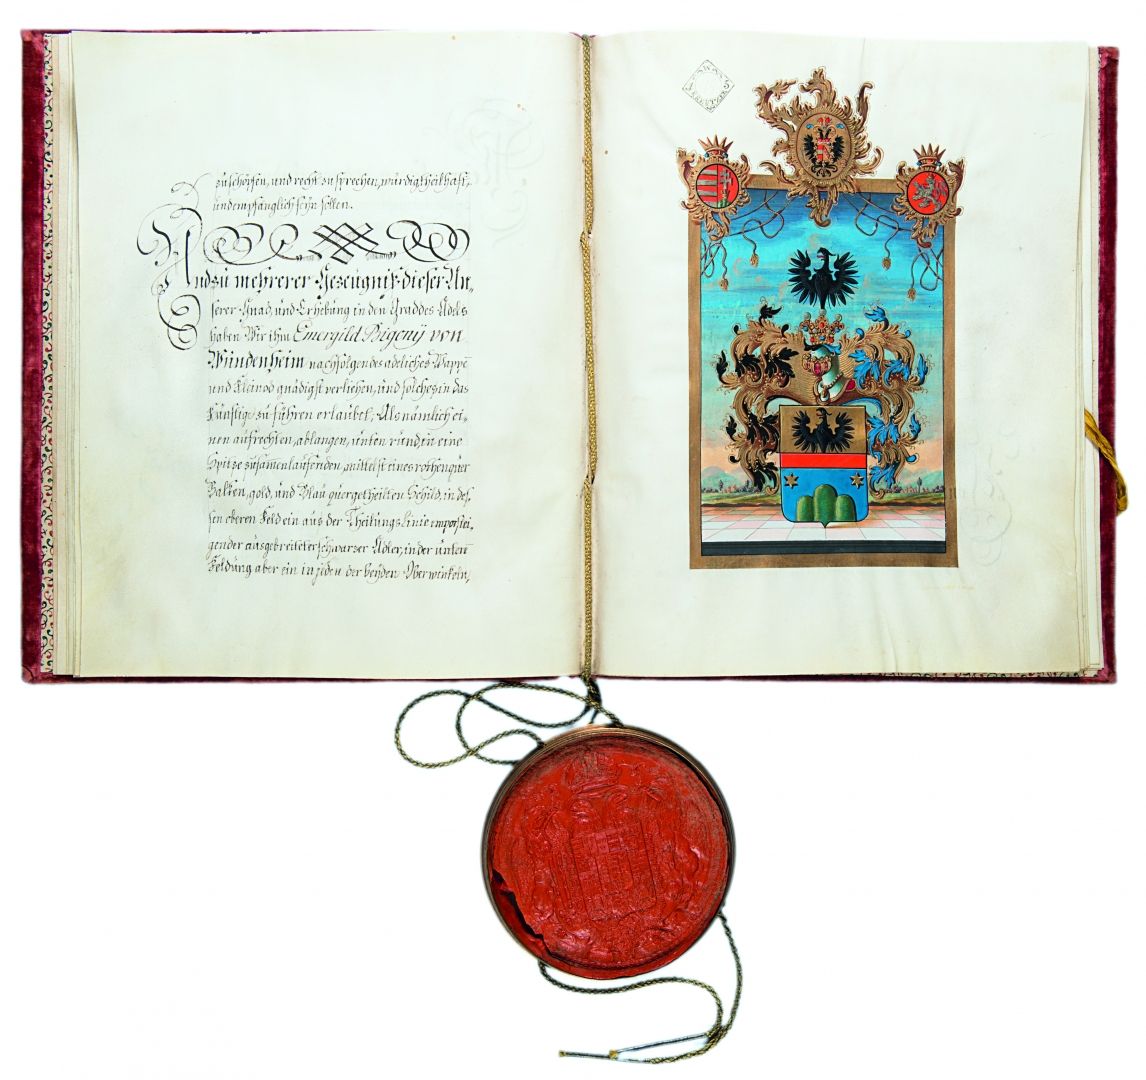 zu schöpfen, und recht zu sprechen, würdig theilhaft,
und empfänglich seÿn sollen.
Und zu mehrerer Gezeügniß dieser Un„
serer Gnad, und Erhebung in den Grad des Adels
haben Wir ihm Emergild Pigenÿ von
Wündenheim nachfolgendes adeliches Wappe
und Kleinod gnädigst verliehen, und solches in das
Künftige zu führen erlaubet, Als nämlich ei„
nen aufrechten, ablangen, unten rund, in eine
Spitze zusamenlaufenden, mittelst eines rothen quer
Balken, gold, und Blau quergetheilten Schild, in des„
sen oberen Feld ein aus der Theilungs Linie emporstei„
gender ausgebreiteter schwarzer Adler, in der untern
Feldung aber ein in jeden der beÿden Oberwinkeln,